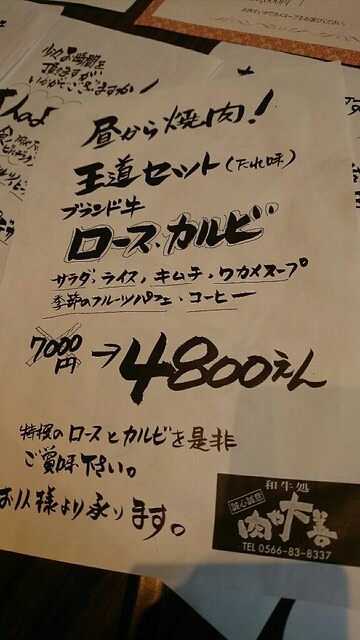 少々お時間を
頂ますが
いかがでございますか!
昼から焼肉!
王道セット(たれ味)
ブランド牛
ロース、カルビ
サラダ、ライス、キムチ・ワカメスープ
季節のフルーツパフェ・コーヒー
7000円→4800えん
特撰のロースとカルビを是非
ご賞味下さい。
お1人様より承ります。
和牛処
誠心誠意
肉や大善
TEL 0566-83-8337